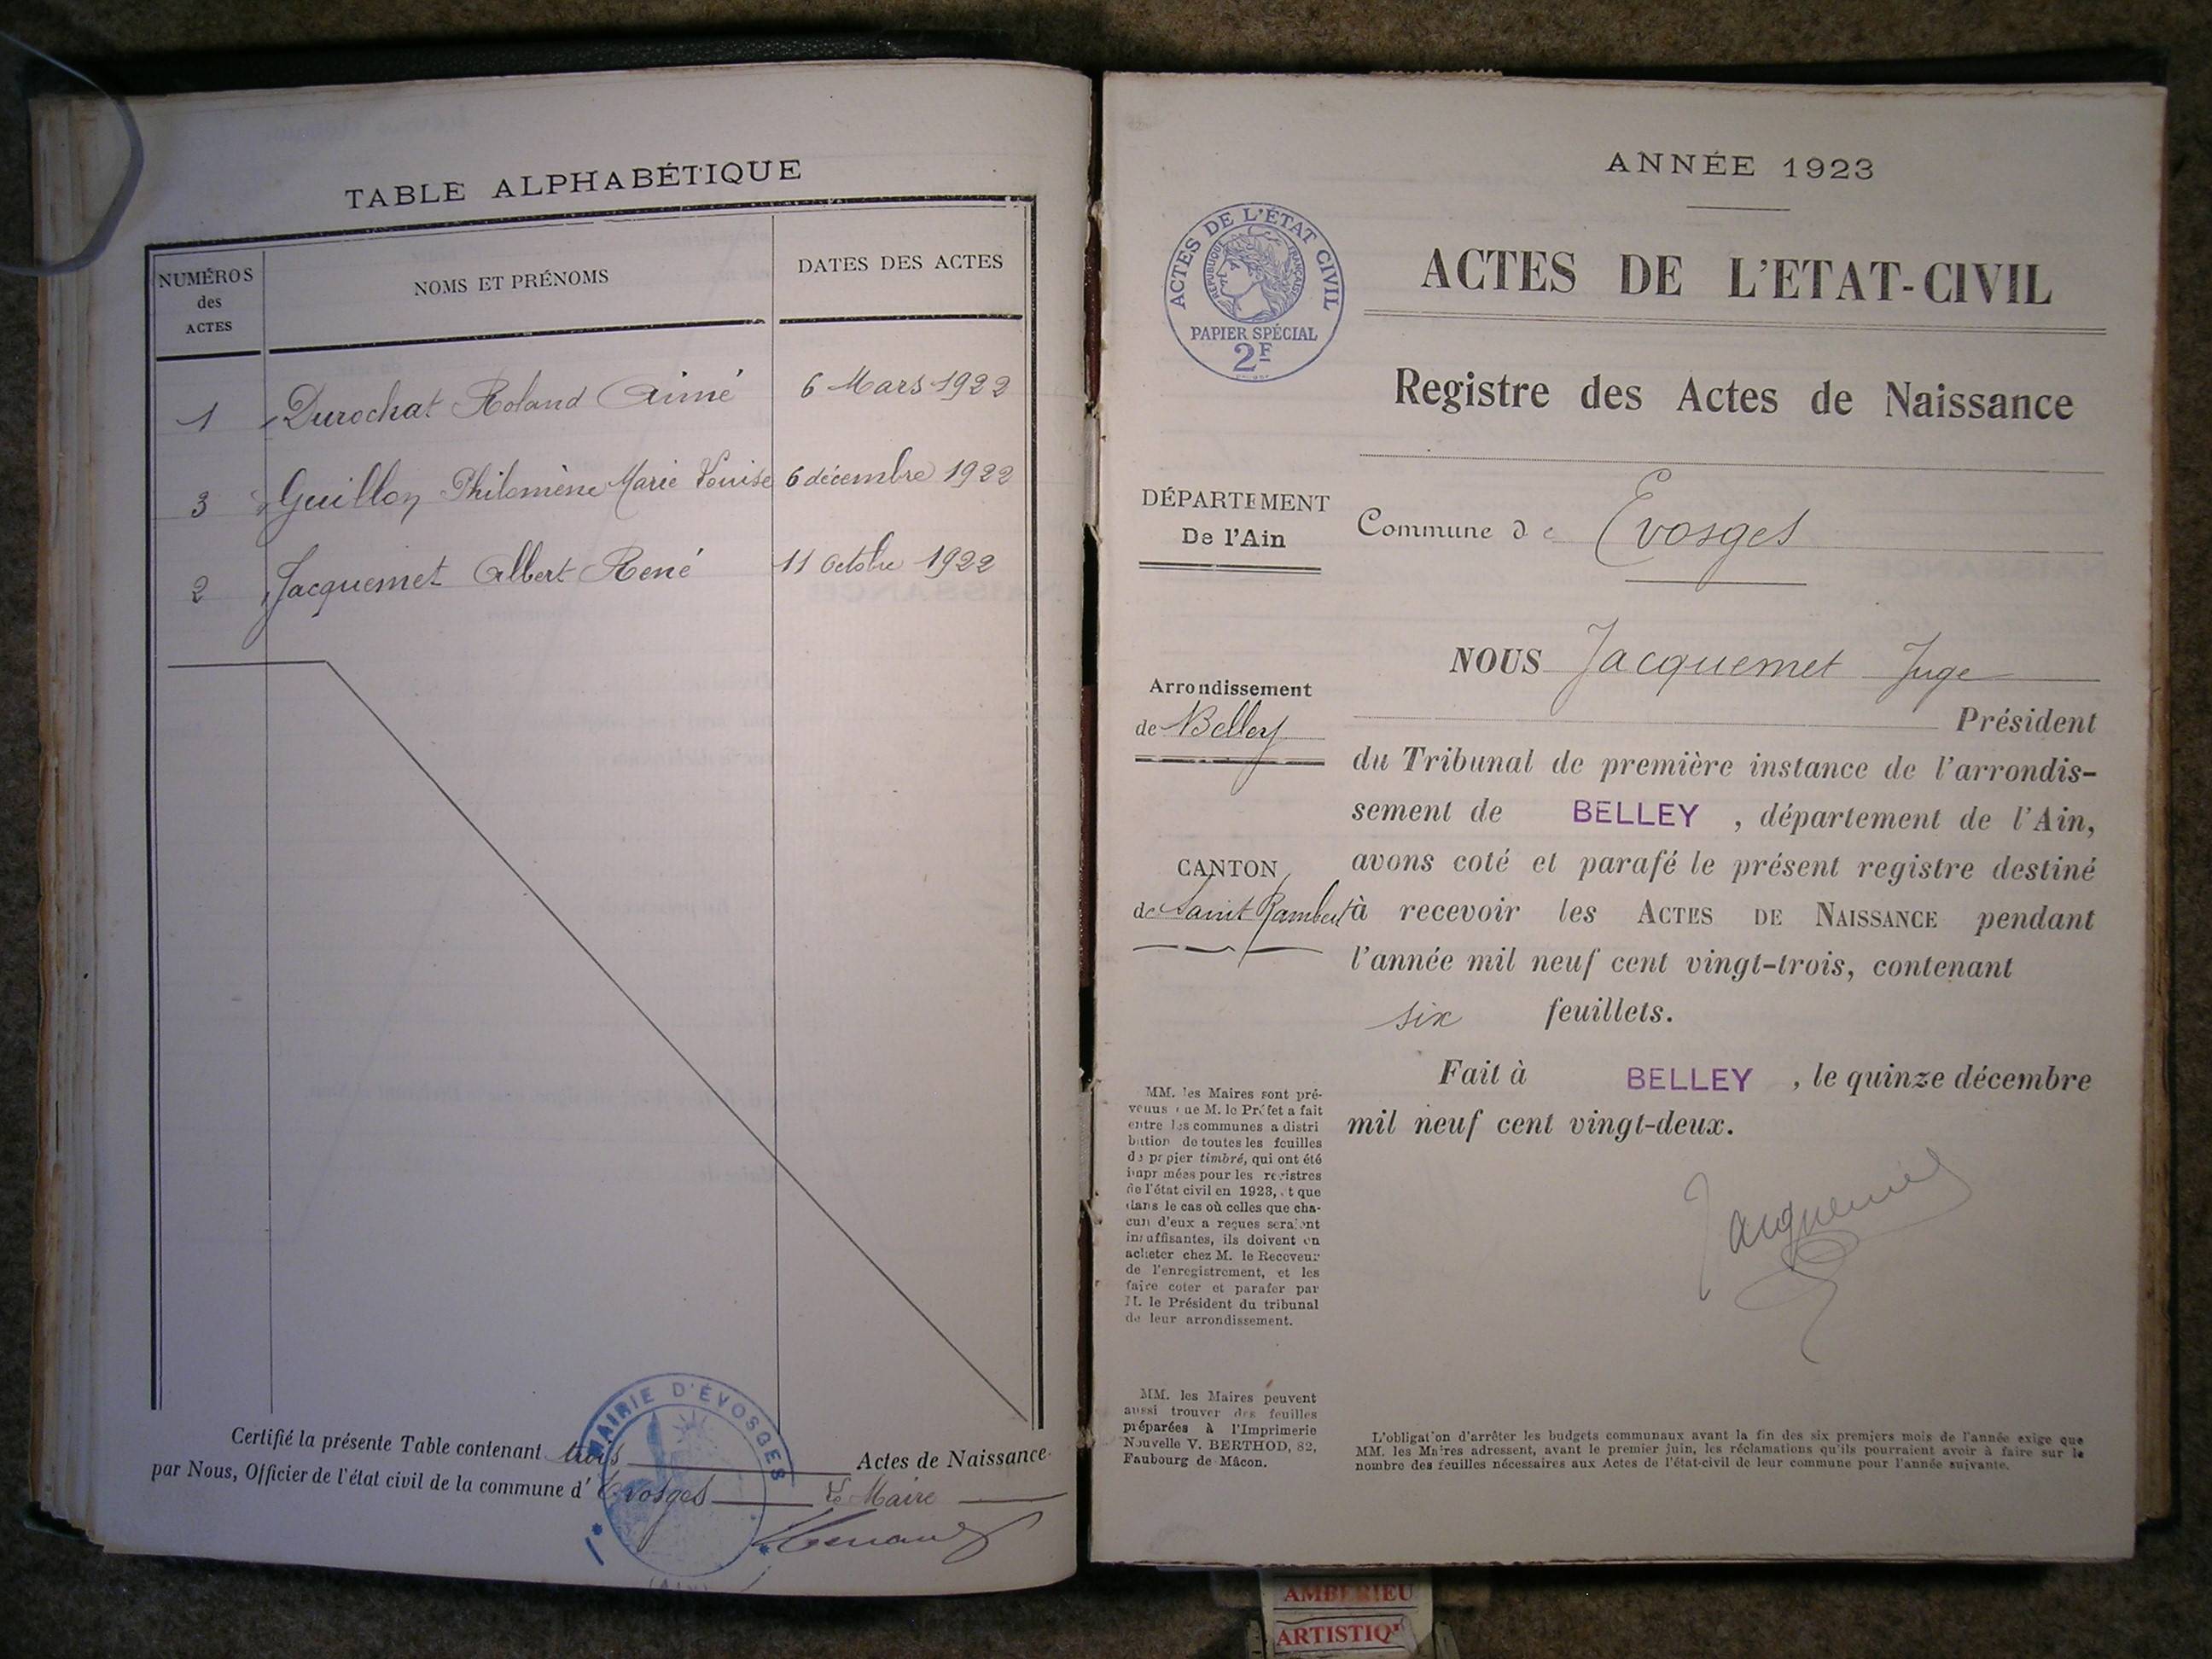 TABLE ALPHABÉTIQUE
NUMÉROS
des
ACTES
NOMS ET PRÉNOMS
DATES DES ACTES
1 Durochat Roland Aimé 6 Mars 1922
3 Guillon Philomène Marie Louise 6 décembre 1922
2 Jacquemet Albert René 11 Octobre 1922
Certifié la présente Table contenant trois Actes de Naissance
par Nous, Officier de l'état civil de la commune d' Evosges Le Maire
MAIRIE D'ÉVOSGES
(AIN)
ANNÉE 1923
ACTES DE L'ÉTAT CIVIL
RÉPUBLIQUE FRANÇAISE
PAPIER SPÉCIAL
2F
ACTES DE L'ETAT-CIVIL
Registre des Actes de Naissance
DÉPARTEMENT
De l'Ain
Commune de Evosges
Arrondissement
de Belley
CANTON
de Saint Rambert
NOUS Jacquemet Juge
Président
du Tribunal de première instance de l'arrondis-
sement de BELLEY , département de l'Ain,
avons coté et parafé le présent registre destiné
à recevoir les ACTES DE NAISSANCE pendant
l'année mil neuf cent vingt-trois, contenant
six feuillets.
Fait à BELLEY , le quinze décembre
mil neuf cent vingt-deux.
Jacquemet
MM. les Maires sont pré-
venus que M. le Préfet a fait
entre les communes a distri
bution de toutes les feuilles
de papier timbré, qui ont été
imprimées pour les registres
de l'état civil en 1923, et que
dans le cas où celles que cha-
cun d'eux a reçues seraient
insuffisantes, ils doivent en
acheter chez M. le Receveur
de l'enregistrement, et les
faire coter et parafer par
M. le Président du tribunal
de leur arrondissement.
MM. les Maires peuvent
aussi trouver des feuilles
préparées à l'Imprimerie
Nouvelle V. BERTHOD, 82,
Faubourg de Mâcon.
L'obligation d'arrêter les budgets communaux avant la fin des six premiers mois de l'année exige que
MM. les Maires adressent, avant le premier juin, les réclamations qu'ils pourraient avoir à faire sur le
nombre des feuilles nécessaires aux Actes de l'état-civil de leur commune pour l'année suivante.
AMBERIEU
ARTISTIQ